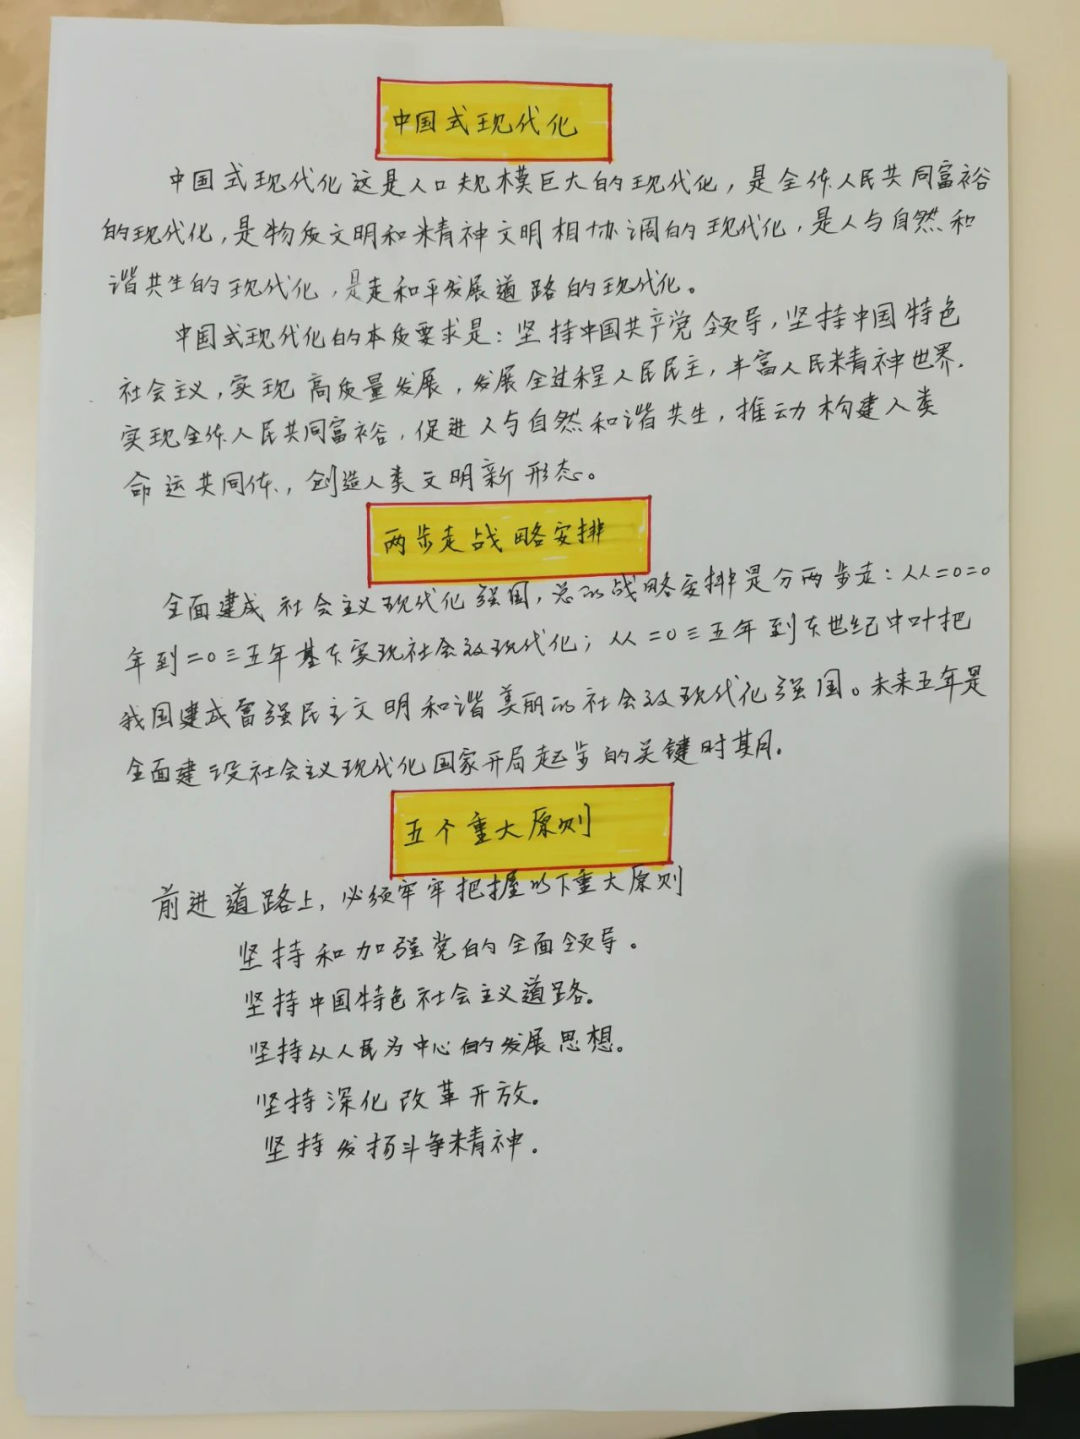 中国式现代化
中国式现代化这是人口规模巨大的现代化，是全体人民共同富裕
的现代化，是物质文明和精神文明相协调的现代化，是人与自然和
谐共生的现代化，是走和平发展道路的现代化。
中国式现代化的本质要求是：坚持中国共产党领导，坚持中国特色
社会主义，实现高质量发展，发展全过程人民民主，丰富人民精神世界.
实现全体人民共同富裕，促进人与自然和谐共生，推动构建人类
命运共同体，创造人类文明新形态。
两步走战略安排
全面建成社会主义现代化强国，总的战略安排是分两步走：从二〇二〇
年到二〇三五年基本实现社会主义现代化；从二〇三五年到本世纪中叶把
我国建成富强民主文明和谐美丽的社会主义现代化强国。未来五年是
全面建设社会主义现代化国家开局起步的关键时期.
五个重大原则
前进道路上，必须牢牢把握以下重大原则
坚持和加强党的全面领导。
坚持中国特色社会主义道路。
坚持以人民为中心的发展思想。
坚持深化改革开放。
坚持发扬斗争精神.